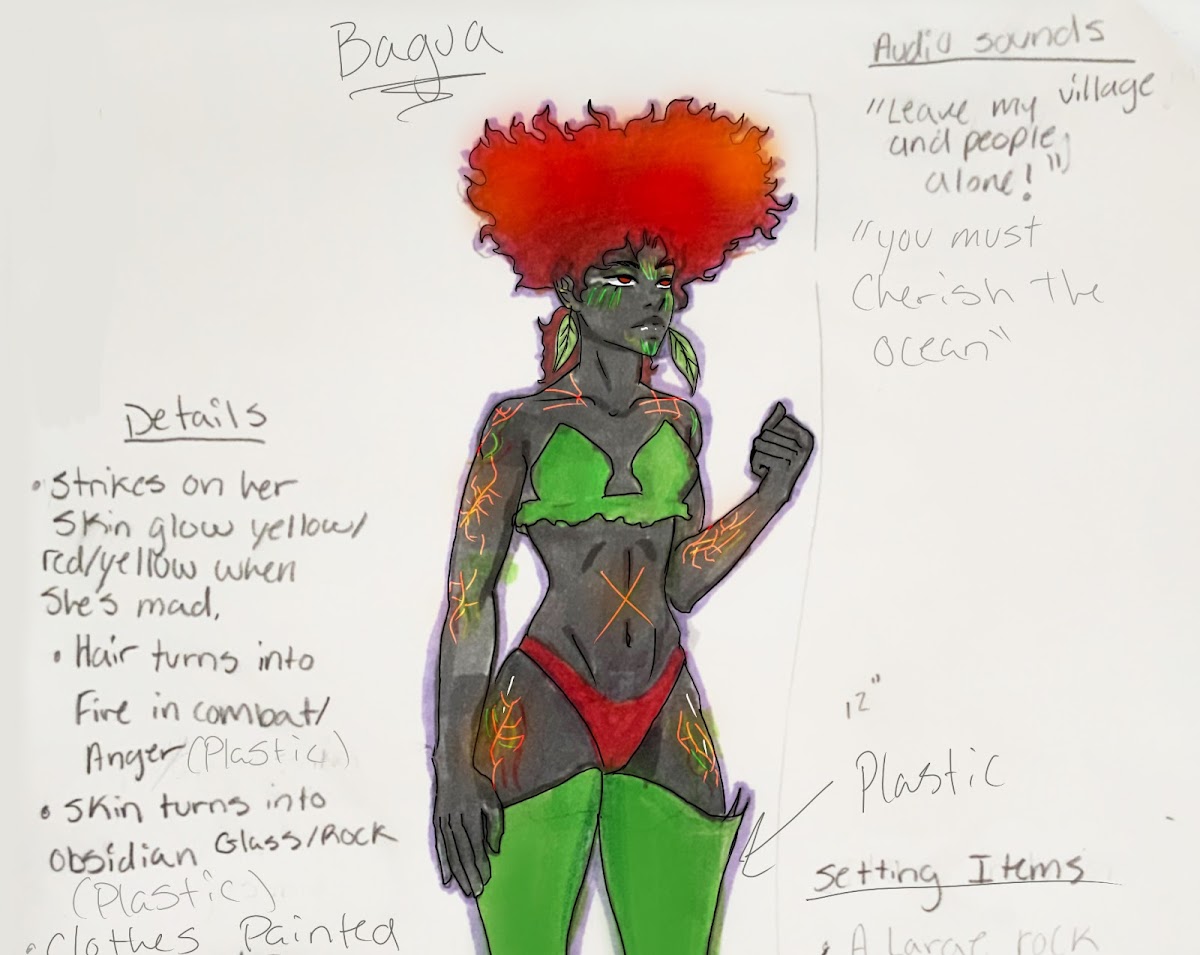 Bagua
Audio sounds
"Leave my village
and people
alone!"
"you must
Cherish the
ocean"
Details
• Strikes on her
skin glow yellow/
red/yellow when
She's mad.
• Hair turns into
Fire in combat/
Anger (Plastic)
• Skin turns into
obsidian Glass/Rock
(Plastic)
• Clothes Painted
12"
Plastic
Setting Items
• A Large rock